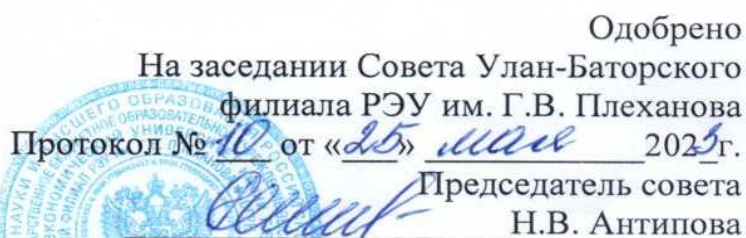 Одобрено
На заседании Совета Улан-Баторского
филиала РЭУ им. Г.В. Плеханова
Протокол № 10 от «25» мая 2023г.
Председатель совета
Н.В. Антипова